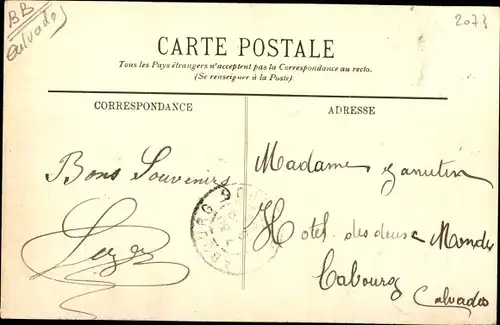 BB
Calvados
2073
CARTE POSTALE
Tous les Pays étrangers n'acceptent pas la Correspondance au recto.
(Se renseigner à la Poste).
CORRESPONDANCE
ADRESSE
Bons Souvenirs
Madame
Hotel des deux Mondes
Cabourg
Calvados
BOURG